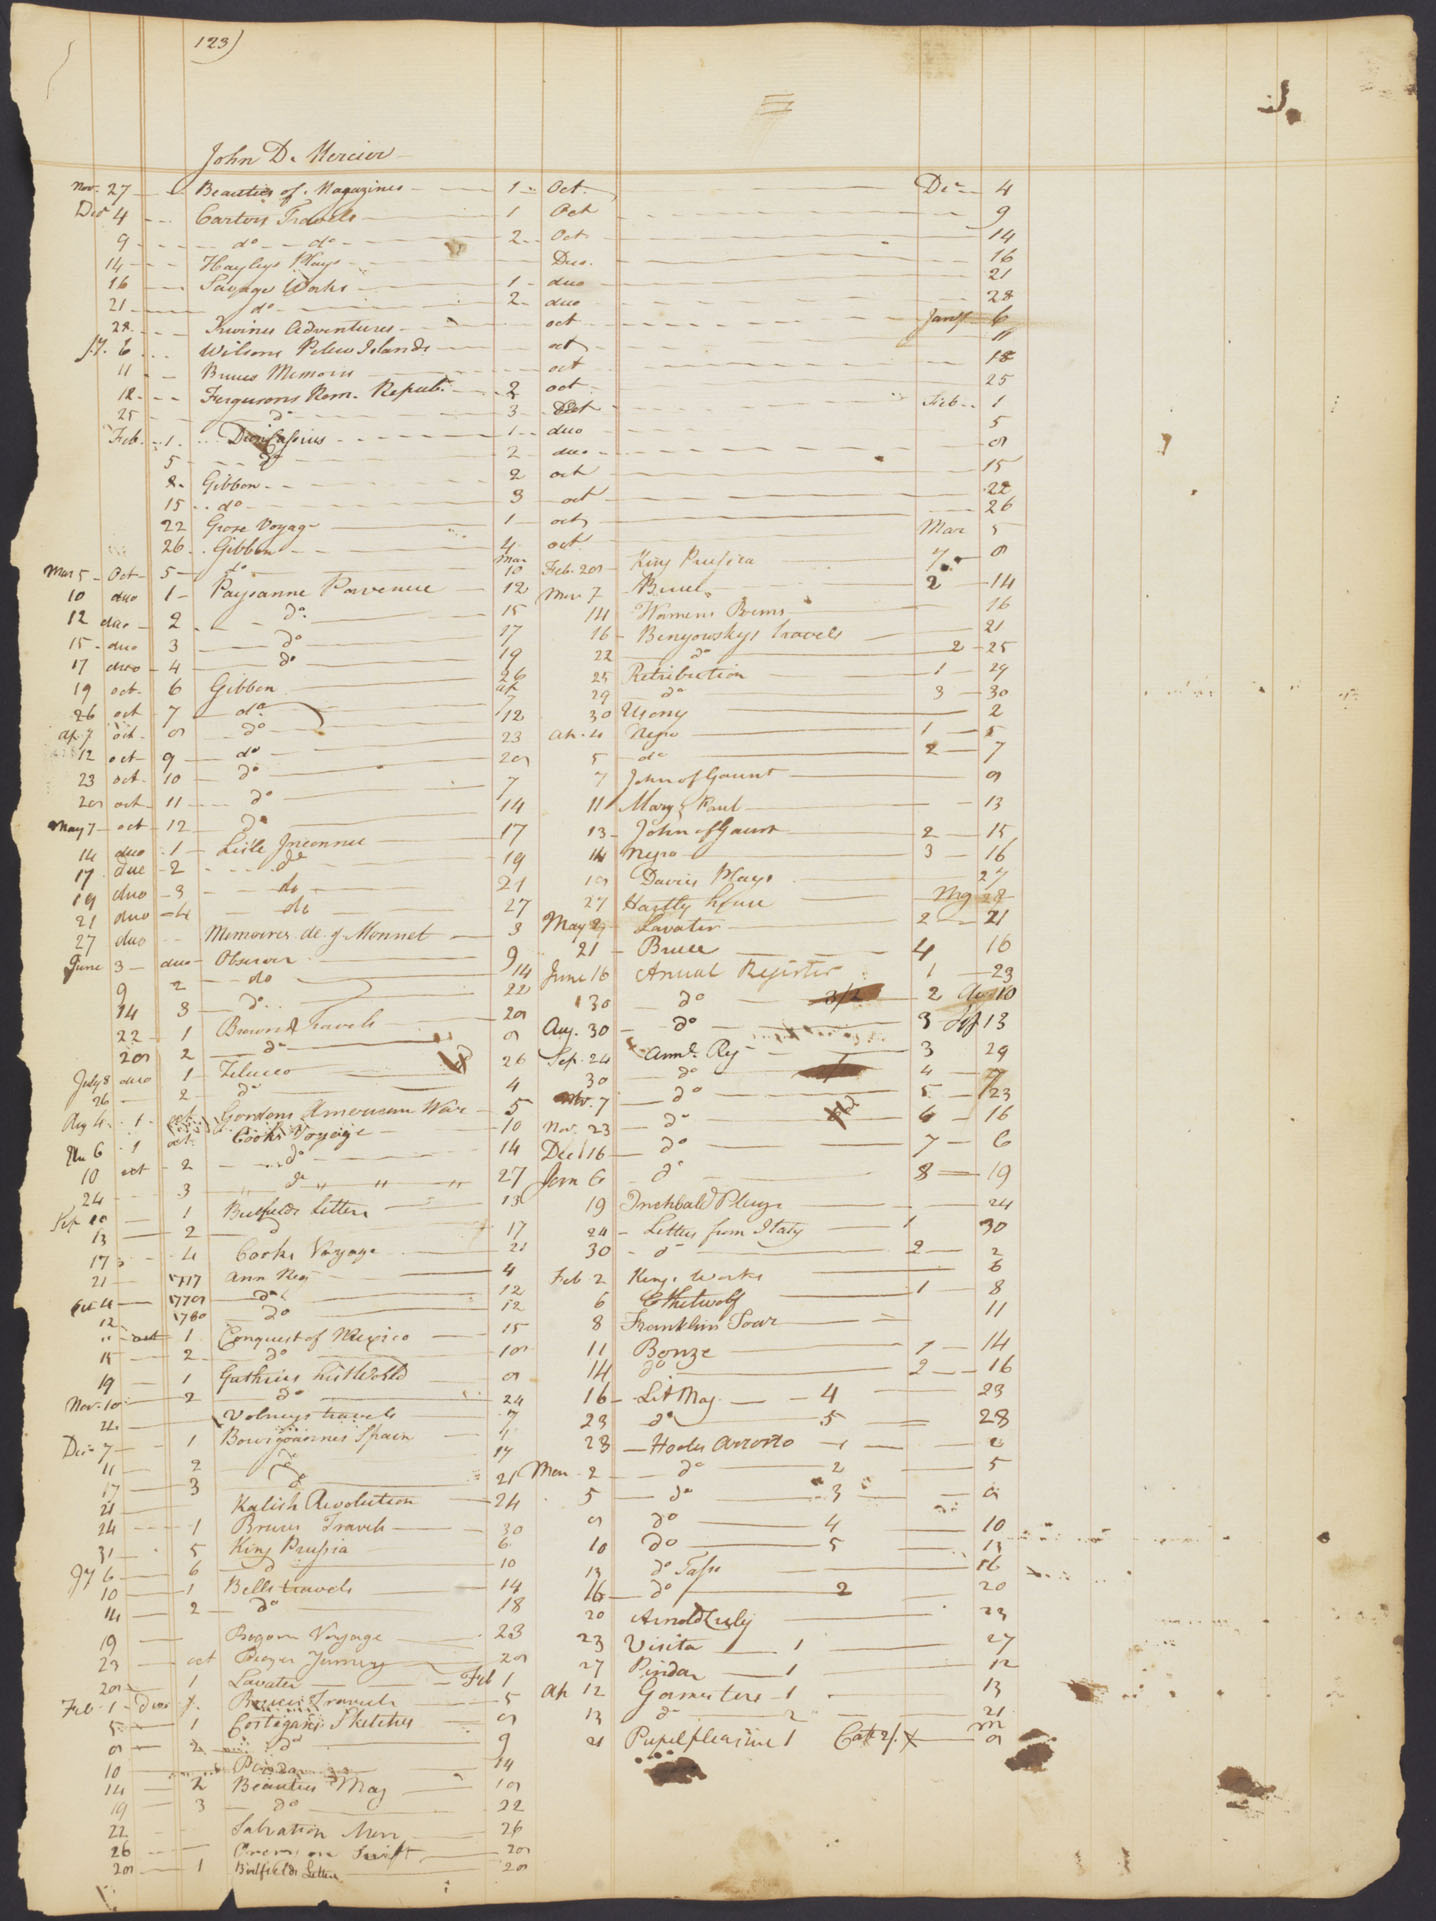 123)
John D. Mercier
Nov. 27 Beauties of Magazines 1 Oct. Decr 4
Decr 4 Carters Travels 1 Oct 9
9 do do 2 Oct 14
14 Hayleys Plays Duo. 16
16 Savages Works 1 duo 21
21 do 2 duo 28
28 Irwines Adventures oct Jany 6
Jy. 6 Wilsons Pelew Islands oct 11
11 Bruces Memoirs oct 18
18 Fergusons Rom. Repub. 2 oct 25
25 do 3 Oct Feb. 1
Feb. 1 Dion Cassius 1 duo 5
5 do 2 duo 8
8 Gibbon 2 oct 15
15 do 3 oct 22
22 Grose Voyag 1 oct 26
26 Gibbon 4 oct Mar 5
Mar 5 Oct 5 do Mar 10 Feb. 28 King Prussia 7 8
10 duo 1 Paysanne Parvenue 12 Mar 7 Bruce 2 14
12 duo 2 do 15 14 Warners Poems 16
15 duo 3 do 17 16 Benyowskys travels 21
17 duo 4 do 19 22 do 2 25
19 oct 6 Gibbon 26 25 Retribution 1 29
26 oct 7 do ap 7 29 do 3 30
ap. 7 oct 8 do 12 30 Usong 2
12 oct 9 do 23 ap. 4 Negro 1 5
23 oct 10 do 28 5 do 2 7
28 oct 11 do 7 7 John of Gaunt 8
May 7 oct 12 do 14 11 Mary & Paul 13
14 duo 1 Lisle Inconnue 17 13 John of Gaunt 2 15
17 duo 2 do 19 14 Negro 3 16
19 duo 3 do 21 18 Davies Plays 27
21 duo 4 do 27 27 Hartly house My 28
27 duo Memoires de g Monnet 3 May 29 Lavater 2 21
June 3 duo Observer 9 21 Bruce 4 16
9 2 do 14 June 16 Anual Register 1 23
14 3 do 22 30 do 2 Au 10
22 1 Brown Travels 28 Aug. 30 do 3 Sep 13
28 2 do 8 Sep. 24 Annl. Reg 3 29
July 8 duo 1 Zeluco 26 30 do 4 7
26 2 do 4 Nov. 7 do 5 23
Aug 4 1 oct Gordons American War 5 Nov. 23 do 6 16
Au 6 1 oct Cooks Voyage 10 Dec 16 do 7 6
10 oct 2 do 14 Jan 6 do 8 19
24 3 do 27 19 Inchbald Plays 24
Sep 10 1 Bielfields Letters 13 24 Letters from Italy 1 30
13 2 do 17 30 do 2 2
17 4 Cooks Voyage 21 Feb 2 Kings works 6
21 1777 Ann Reg 4 6 Ethelwolf 1 8
Oct 4 1778 do 12 8 Franklins Tour 11
12 1780 do 12 11 Bonze 1 14
" oct 1 Conquest of Mexico 15 14 do 2 16
15 2 do 18 16 Lit Mag 4 23
19 1 Guthries hist World 8 23 do 5 28
Nov. 10 2 do 24 28 Hools Arrosto 1 2
24 Volneys travels 7 Mar 2 do 2 5
Dec 7 1 Bourgoannes Spain 11 5 do 3 8
11 2 do 17 8 do 4 10
17 3 do 21 10 do 5 13
21 Kalish Revolution 24 13 do Tasso 16
24 1 Bruces Travels 30 16 do 2 20
31 5 King Prussia 6 20 23
Jy 6 6 do 10 23 Visita 1 27
10 1 Bells travels 14 27 Pindar 1 12
14 2 do 18 Ap 12 1 13
19 Voyage 23 13 do 2 21
23 oct 28 21 1 m 8
28 1 Lavater Feb 1
Feb 1 Duo 1. Bruces Travels 5
5 1 Costigans Sketches 8
8 2 do 9
10 Pindar 14
14 2 Beauties Mag 18
19 3 do 22
22 26
26 Swift 28
28 1 Bielfields Letters 28